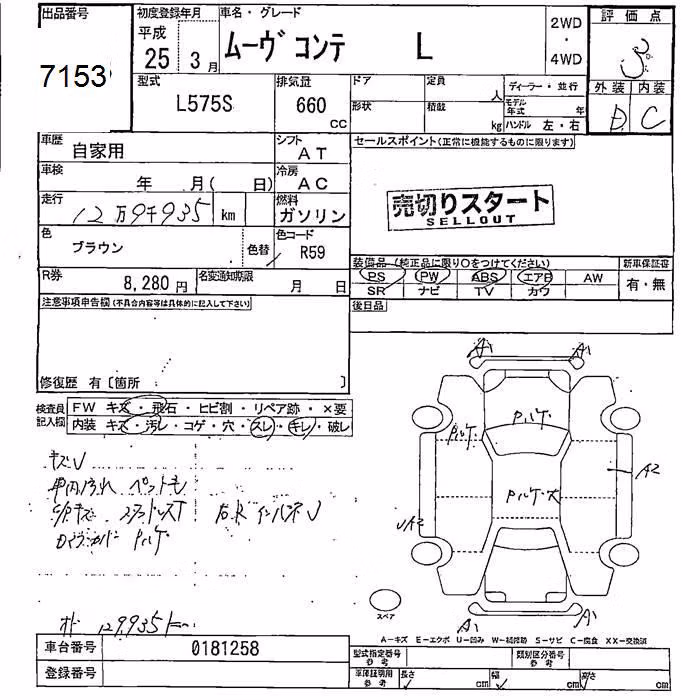 出品番号
7153
初度登録年月
平成
25年 3月
車名・グレード
ムーヴ コンテ L
2WD
・
4WD
評価点
3
外装 内装
D C
型式
L575S
排気量
660
CC
ドア
形状
定員
人
積載
kg
ディーラー・並行
モデル
年式 年
ハンドル 左・右
車歴
自家用
シフト
AT
車検
年 月( 日)
冷房
AC
走行
12万9千935 km
燃料
ガソリン
色
ブラウン
色替
色コード
R59
R券
8,280円
名変通知期限
月 日
セールスポイント(正常に機能するものに限ります)
売切りスタート
SELLOUT
装備品(純正品に限り○をつけてください)
新車保証書
PS PW ABS エアB AW
SR ナビ TV カワ
有・無
後日品
注意事項申告欄(不具合内容等は具体的に記入して下さい)
修復歴 有〔箇所 〕
検査員
記入欄
FW キズ・飛石・ヒビ割・リペア跡・×要
内装 キズ・汚レ・コゲ・穴・スレ・キレ・破レ
キズU
車内汚れ ペット毛
129,935
A1
A1
Pハゲ
Pハゲ
Pハゲ大
A2
UA2
A1
A1
スペア
A−キズ E−エクボ U−凹み W−補修跡 S−サビ C−腐食 XX−交換済
車台番号
0181258
登録番号
型式指定番号
参考
類別区分番号
参考
車庫証明用
参考
長さ cm
幅 cm
高さ cm